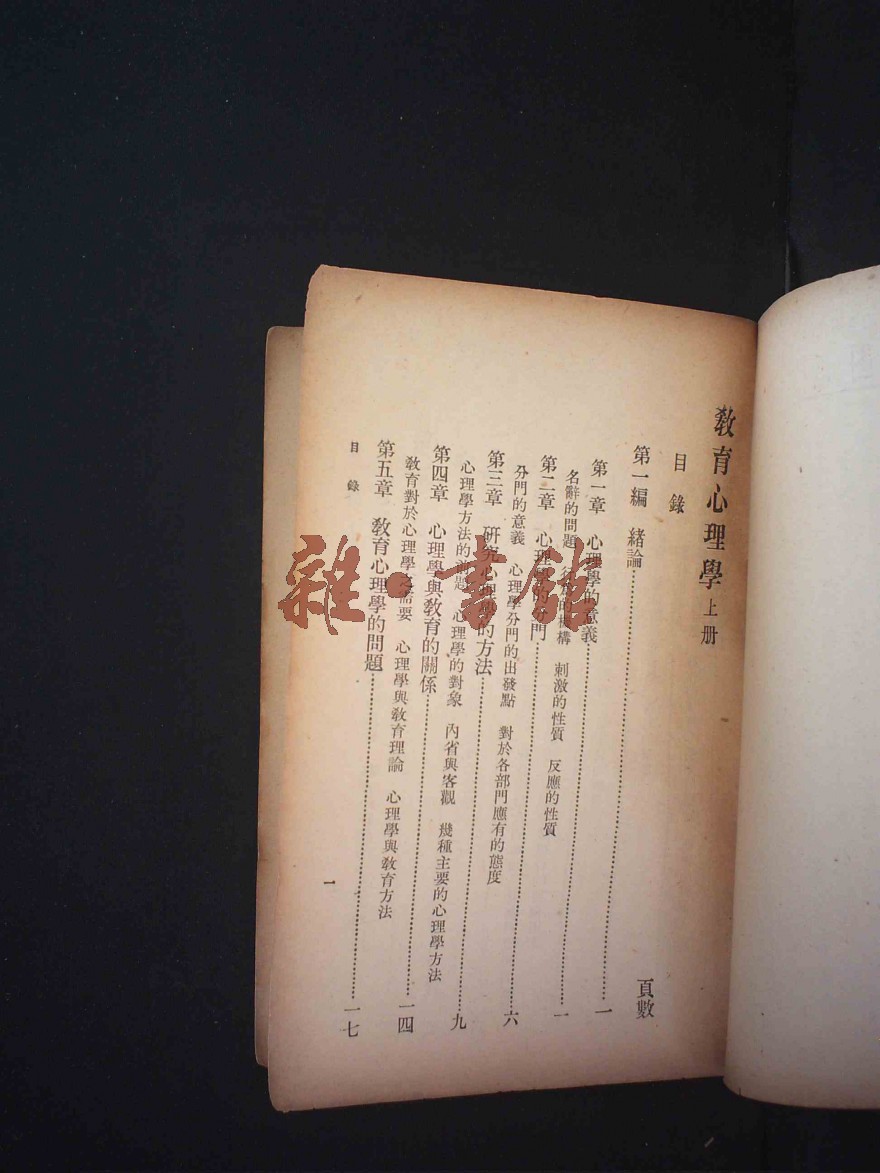 教育心理學 上册
目錄
頁數
第一編 緒論……一
第一章 心理學的意義……一
名辭的問題 行爲的機構 刺激的性質 反應的性質
第二章 心理學的分門……六
分門的意義 心理學分門的出發點 對於各部門應有的態度
第三章 研究心理學的方法……九
心理學方法的問題 心理學的對象 內省與客觀 幾種主要的心理學方法
第四章 心理學與教育的關係……一四
教育對於心理學之需要 心理學與教育理論 心理學與教育方法
第五章 教育心理學的問題……一七
目錄
一
雜·書館